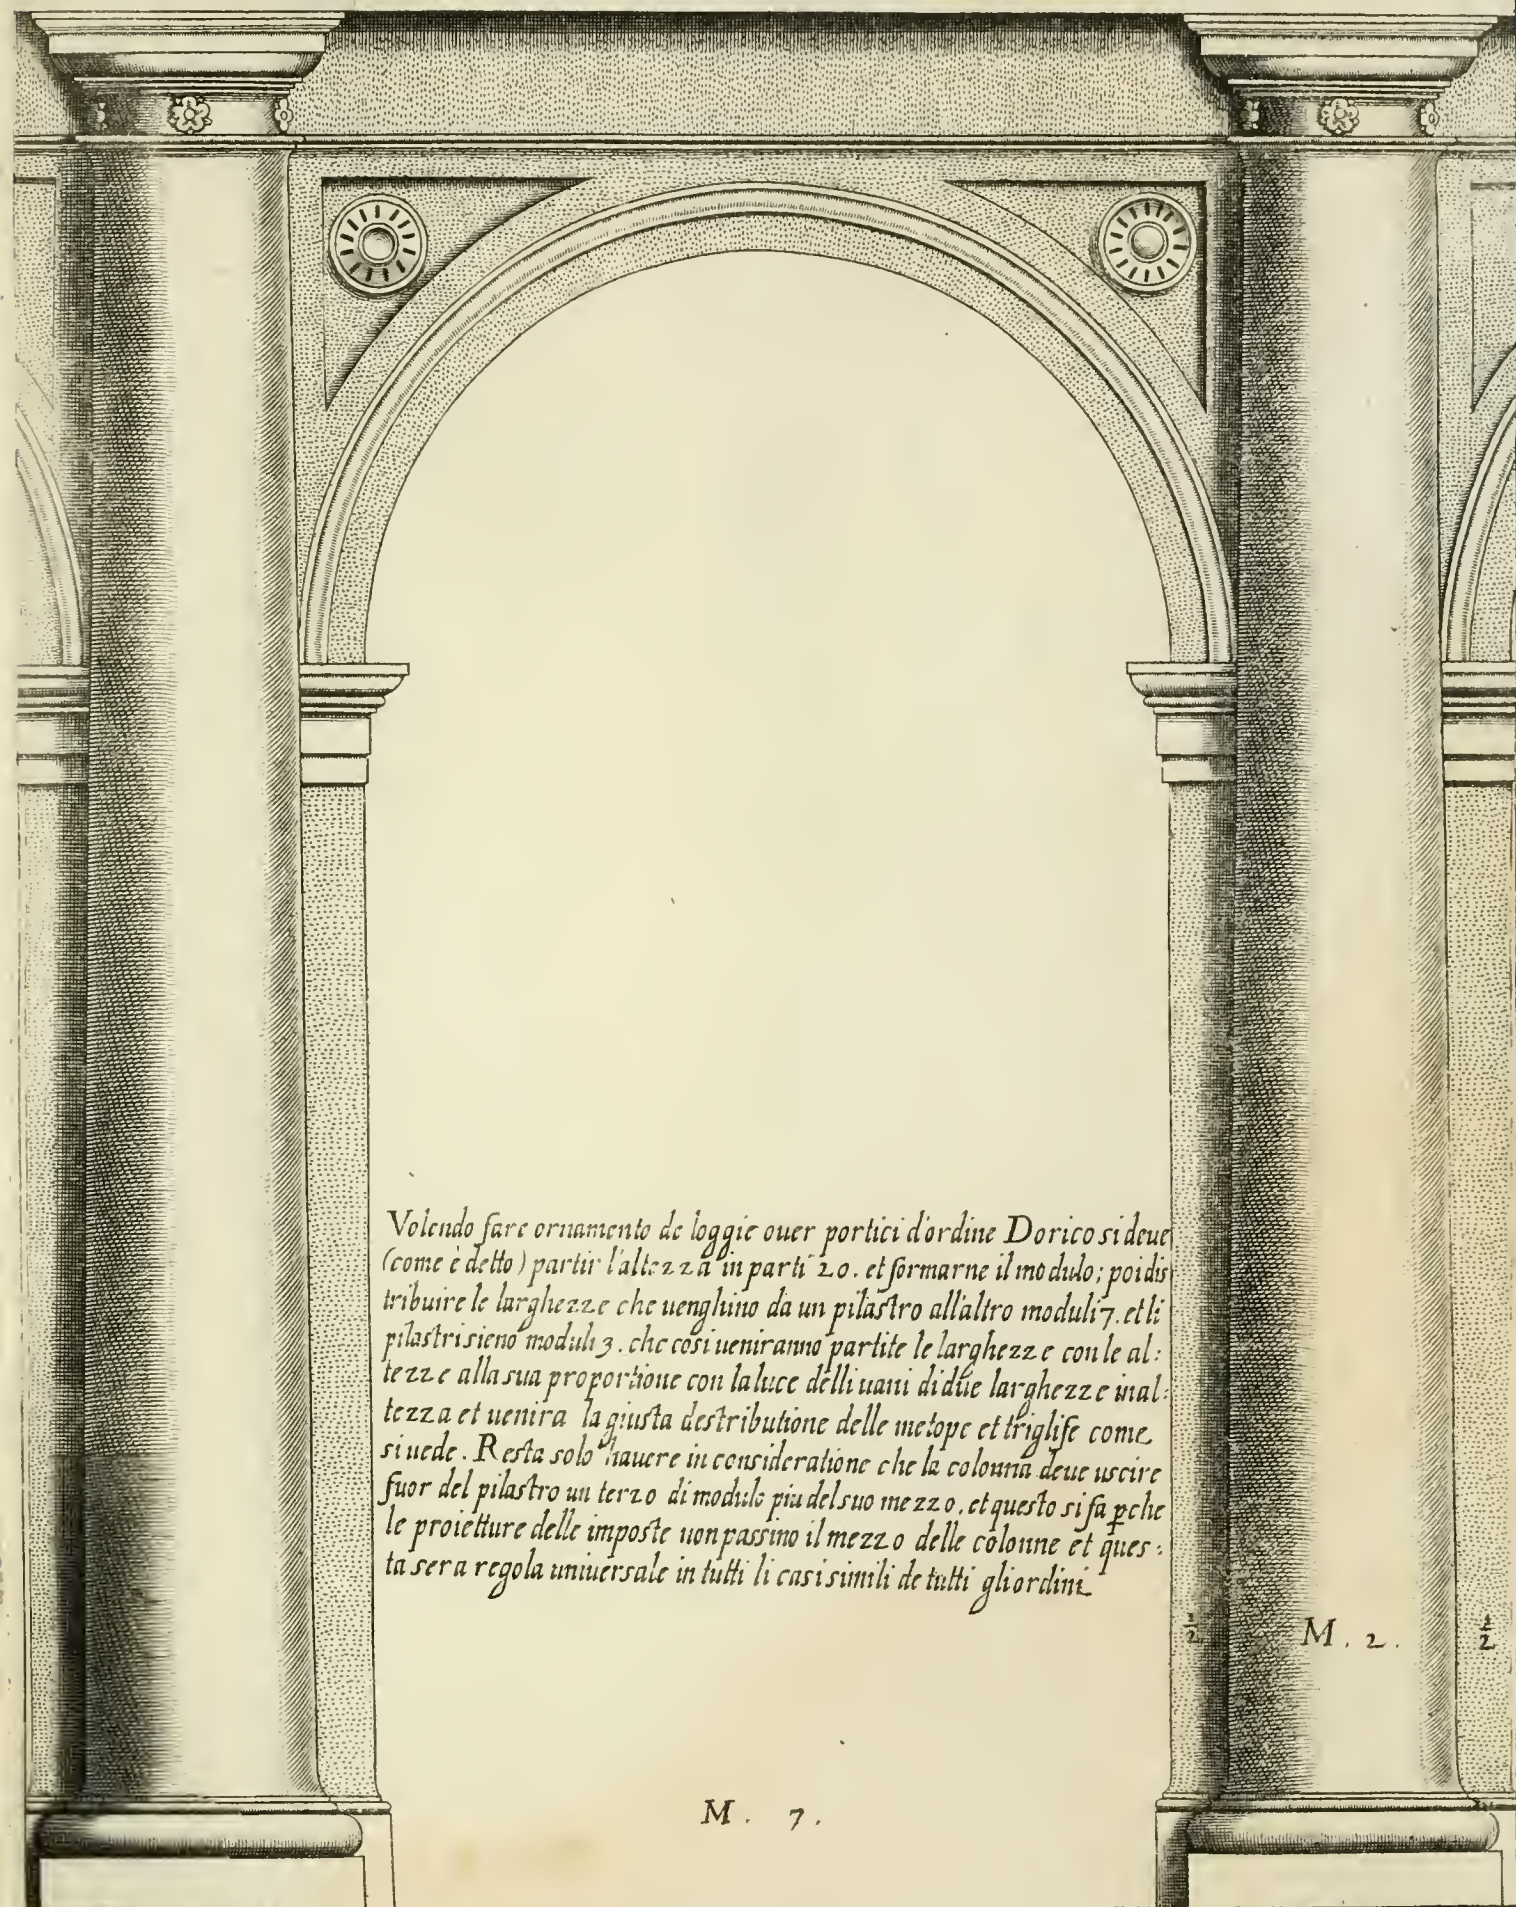 Volendo fare ornamento de loggie ouer portici d'ordine Dorico si deue
(come è detto) partir l'altezza in parti 20. et formarne il modulo; poi dis
tribuire le larghezze che uenghino da un pilastro all'altro moduli 7. et li
pilastri sieno moduli 3. che cosi ueniranno partite le larghezze con le al:
tezze alla sua proportione con la luce delli uani di due larghezze in al:
tezza et uenira la giusta destributione delle metope et triglife come
si uede. Resta solo hauere in consideratione che la colonna deue uscire
fuor del pilastro un terzo di modulo piu del suo mezzo. et questo si fa ꝑche
le proietture delle imposte non passino il mezzo delle colonne et ques:
ta sera regola uniuersale in tutti li casi simili de tutti gli ordini
½ M. 2. ½
M. 7.